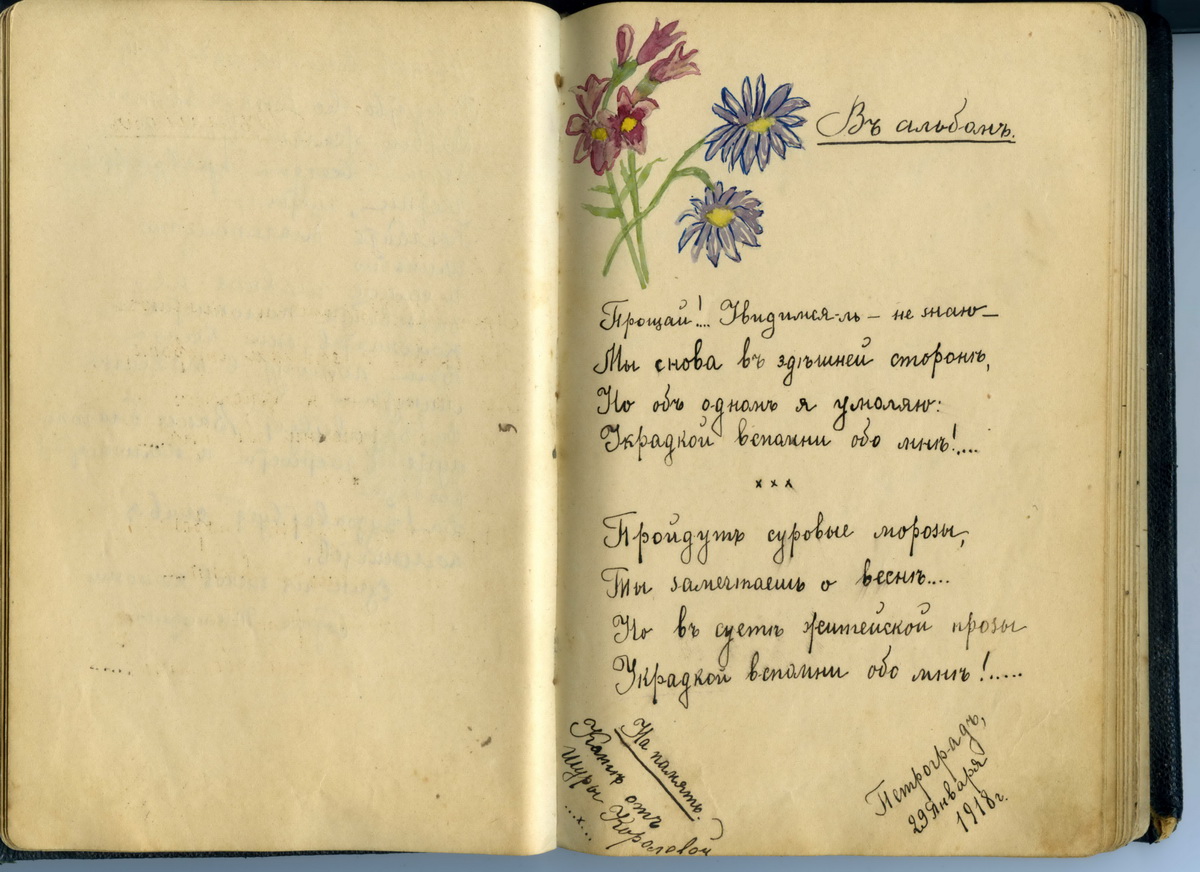 Въ альбомъ.
Прощай!... Увидимся-ль – не знаю –
Мы снова въ здѣшней сторонѣ,
Но объ одномъ я умоляю:
Украдкой вспомни обо мнѣ!....
× × ×
Пройдутъ суровые морозы,
Ты замечтаешь о веснѣ....
Но въ суетѣ житейской прозы
Украдкой вспомни обо мнѣ!.....
На память.
отъ
Шуры Королевой
...×...
Петроградъ,
29 Января
1918 г.